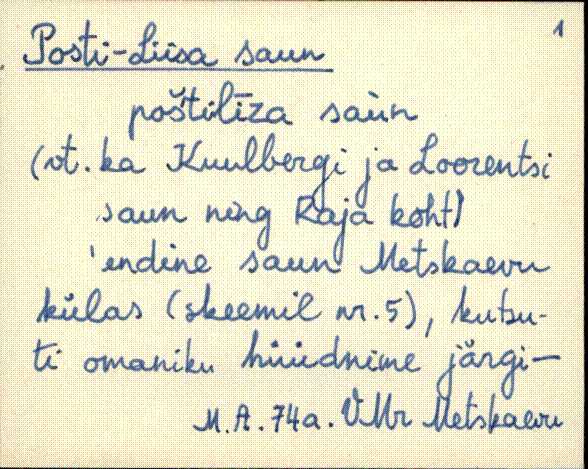 1
Posti-Liisa saun
poštilīza saùn
(vt. ka Kuulbergi ja Loorentsi
saun ning Raja koht)
'endine saun Metskaevu
külas (skeemil nr. 5), kutsu-
ti omaniku hüüdnime järgi—
M.A. 74a. VMr Metskaevu